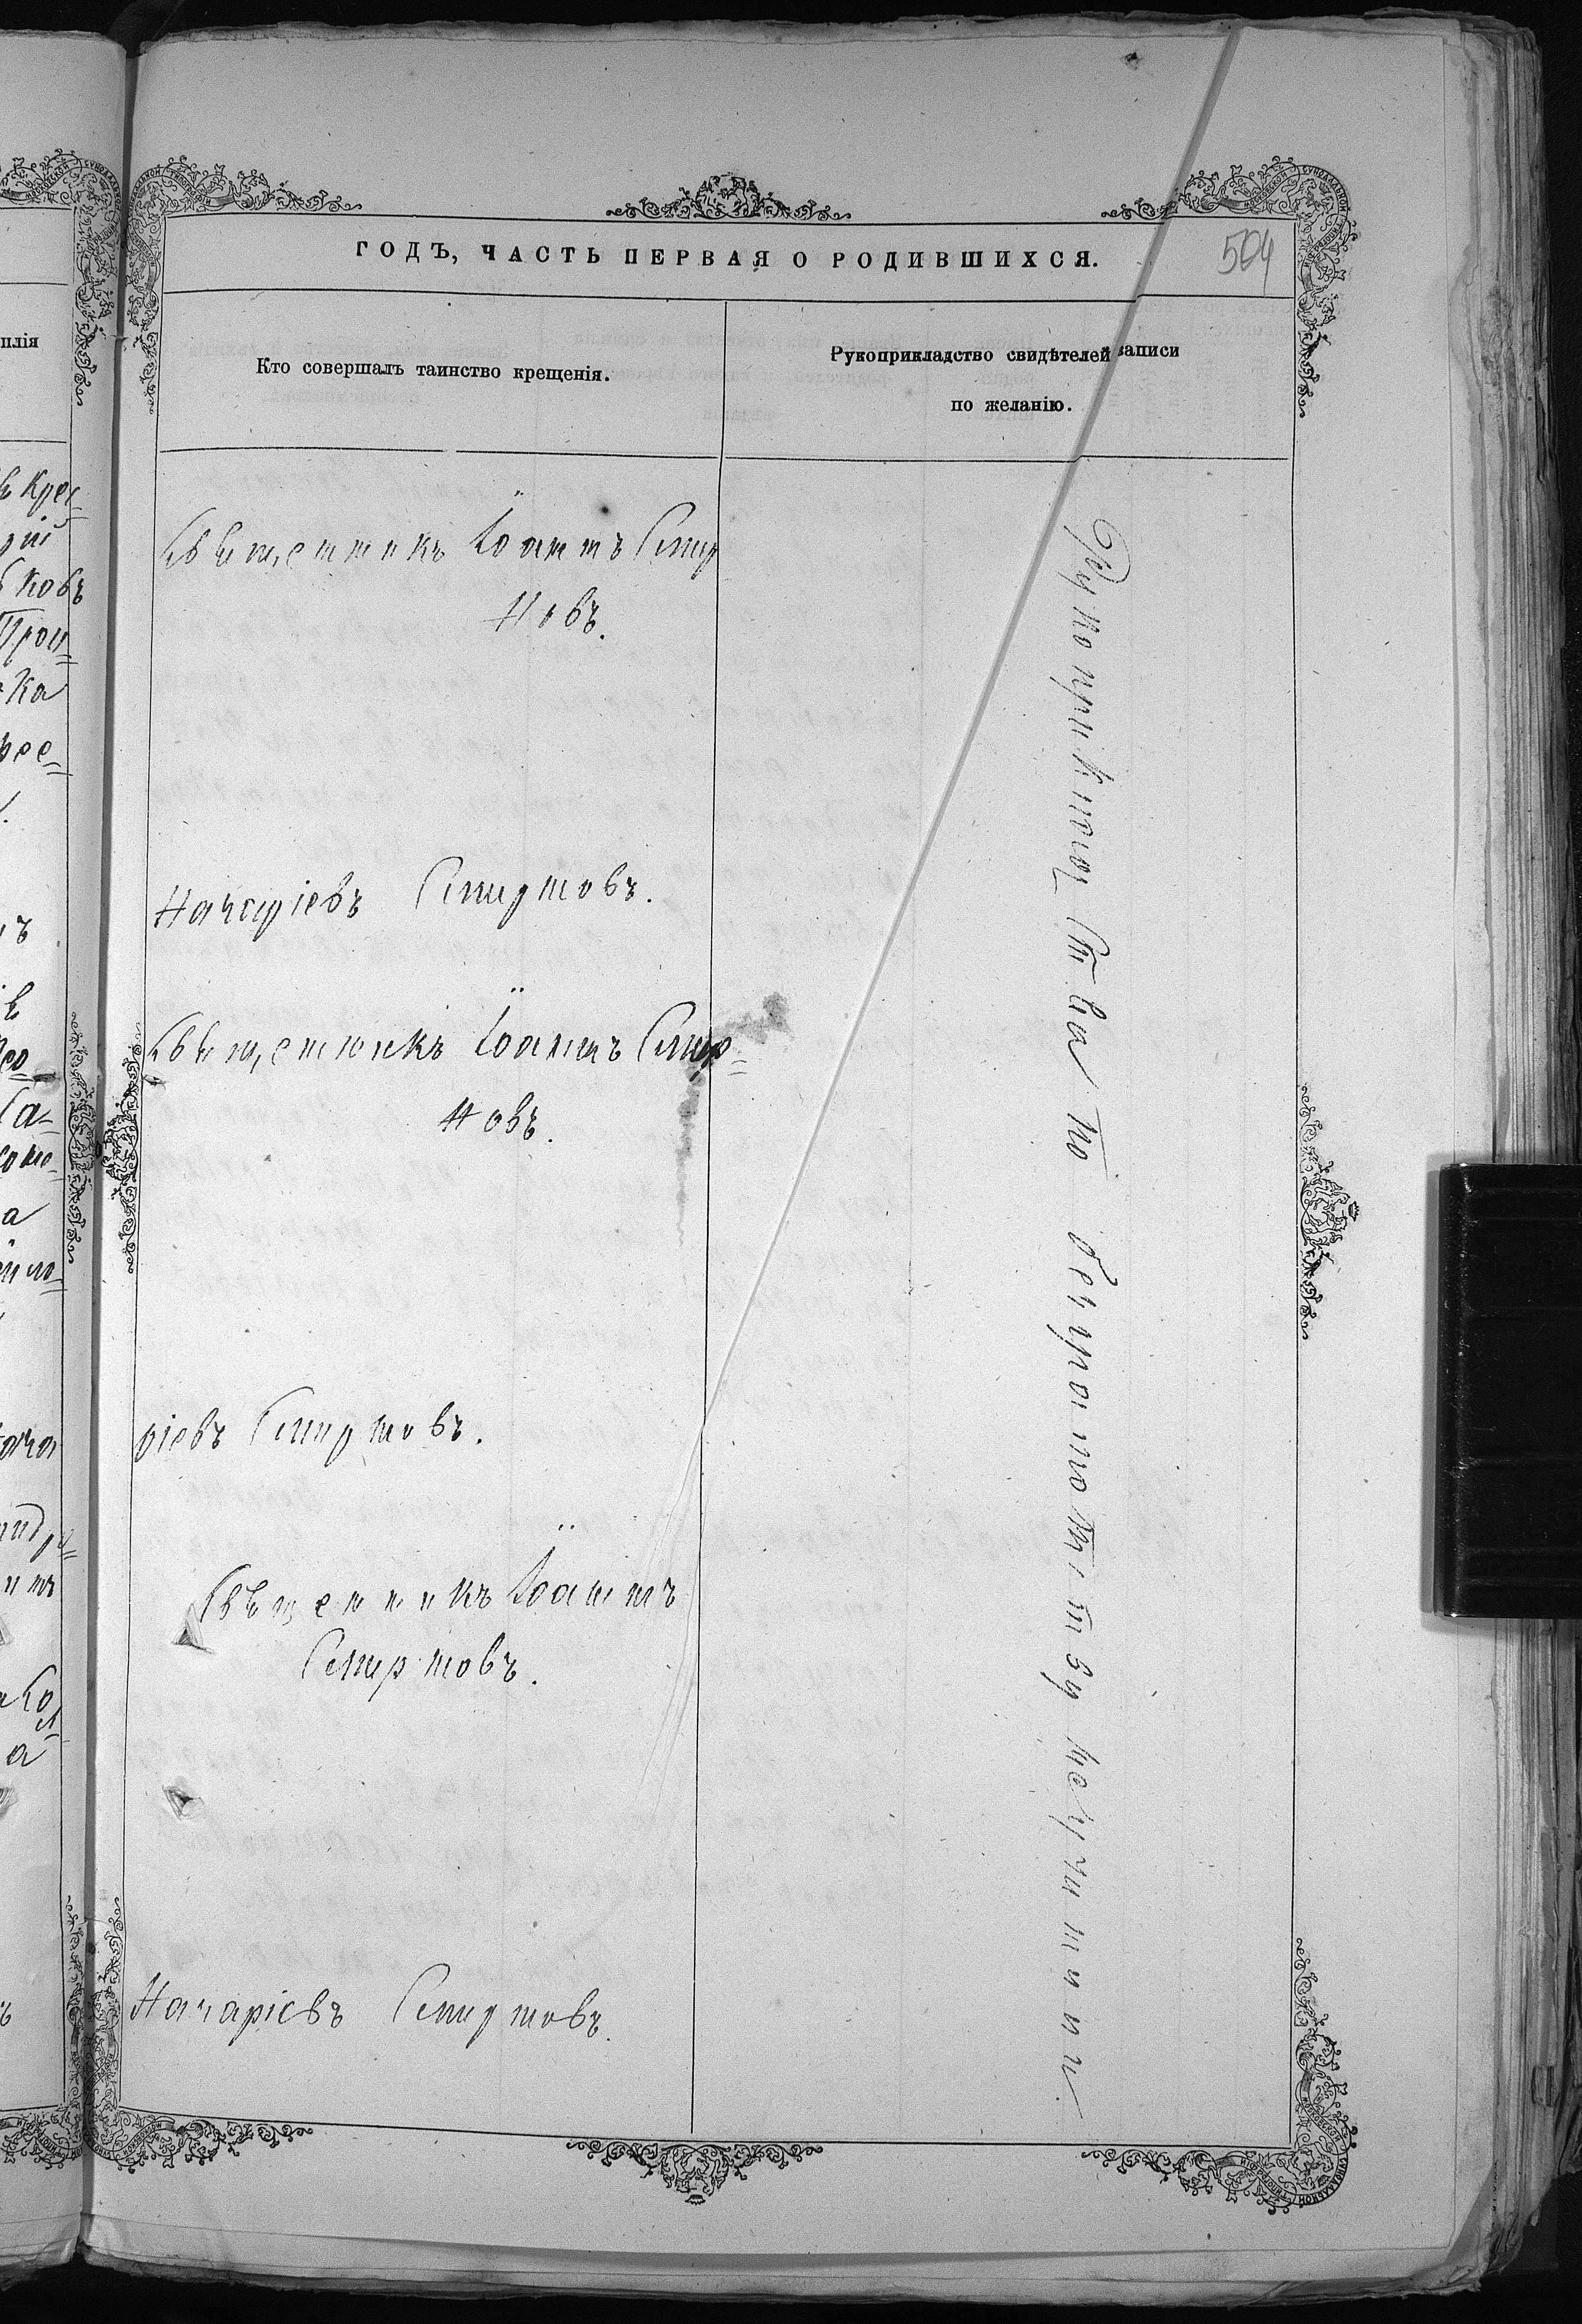 ГОДЪ, ЧАСТЬ ПЕРВАЯ О РОДИВШИХСЯ.
504
Кто совершалъ таинство крещенія.
Рукоприкладство свидѣтелей записи
по желанію.
Свѣщенникъ Іоаннъ Смир
новъ.
Назаріевъ Смирновъ.
Свѣщенникъ Іоаннъ Смир=
новъ.
ріевъ Смирновъ.
Свѣщенникъ Іоаннъ
Смирновъ.
Назаріевъ Смирновъ.
Рукоприкладства по безграмотству неучинили
плія
ковъ
ка
рее=
а
а